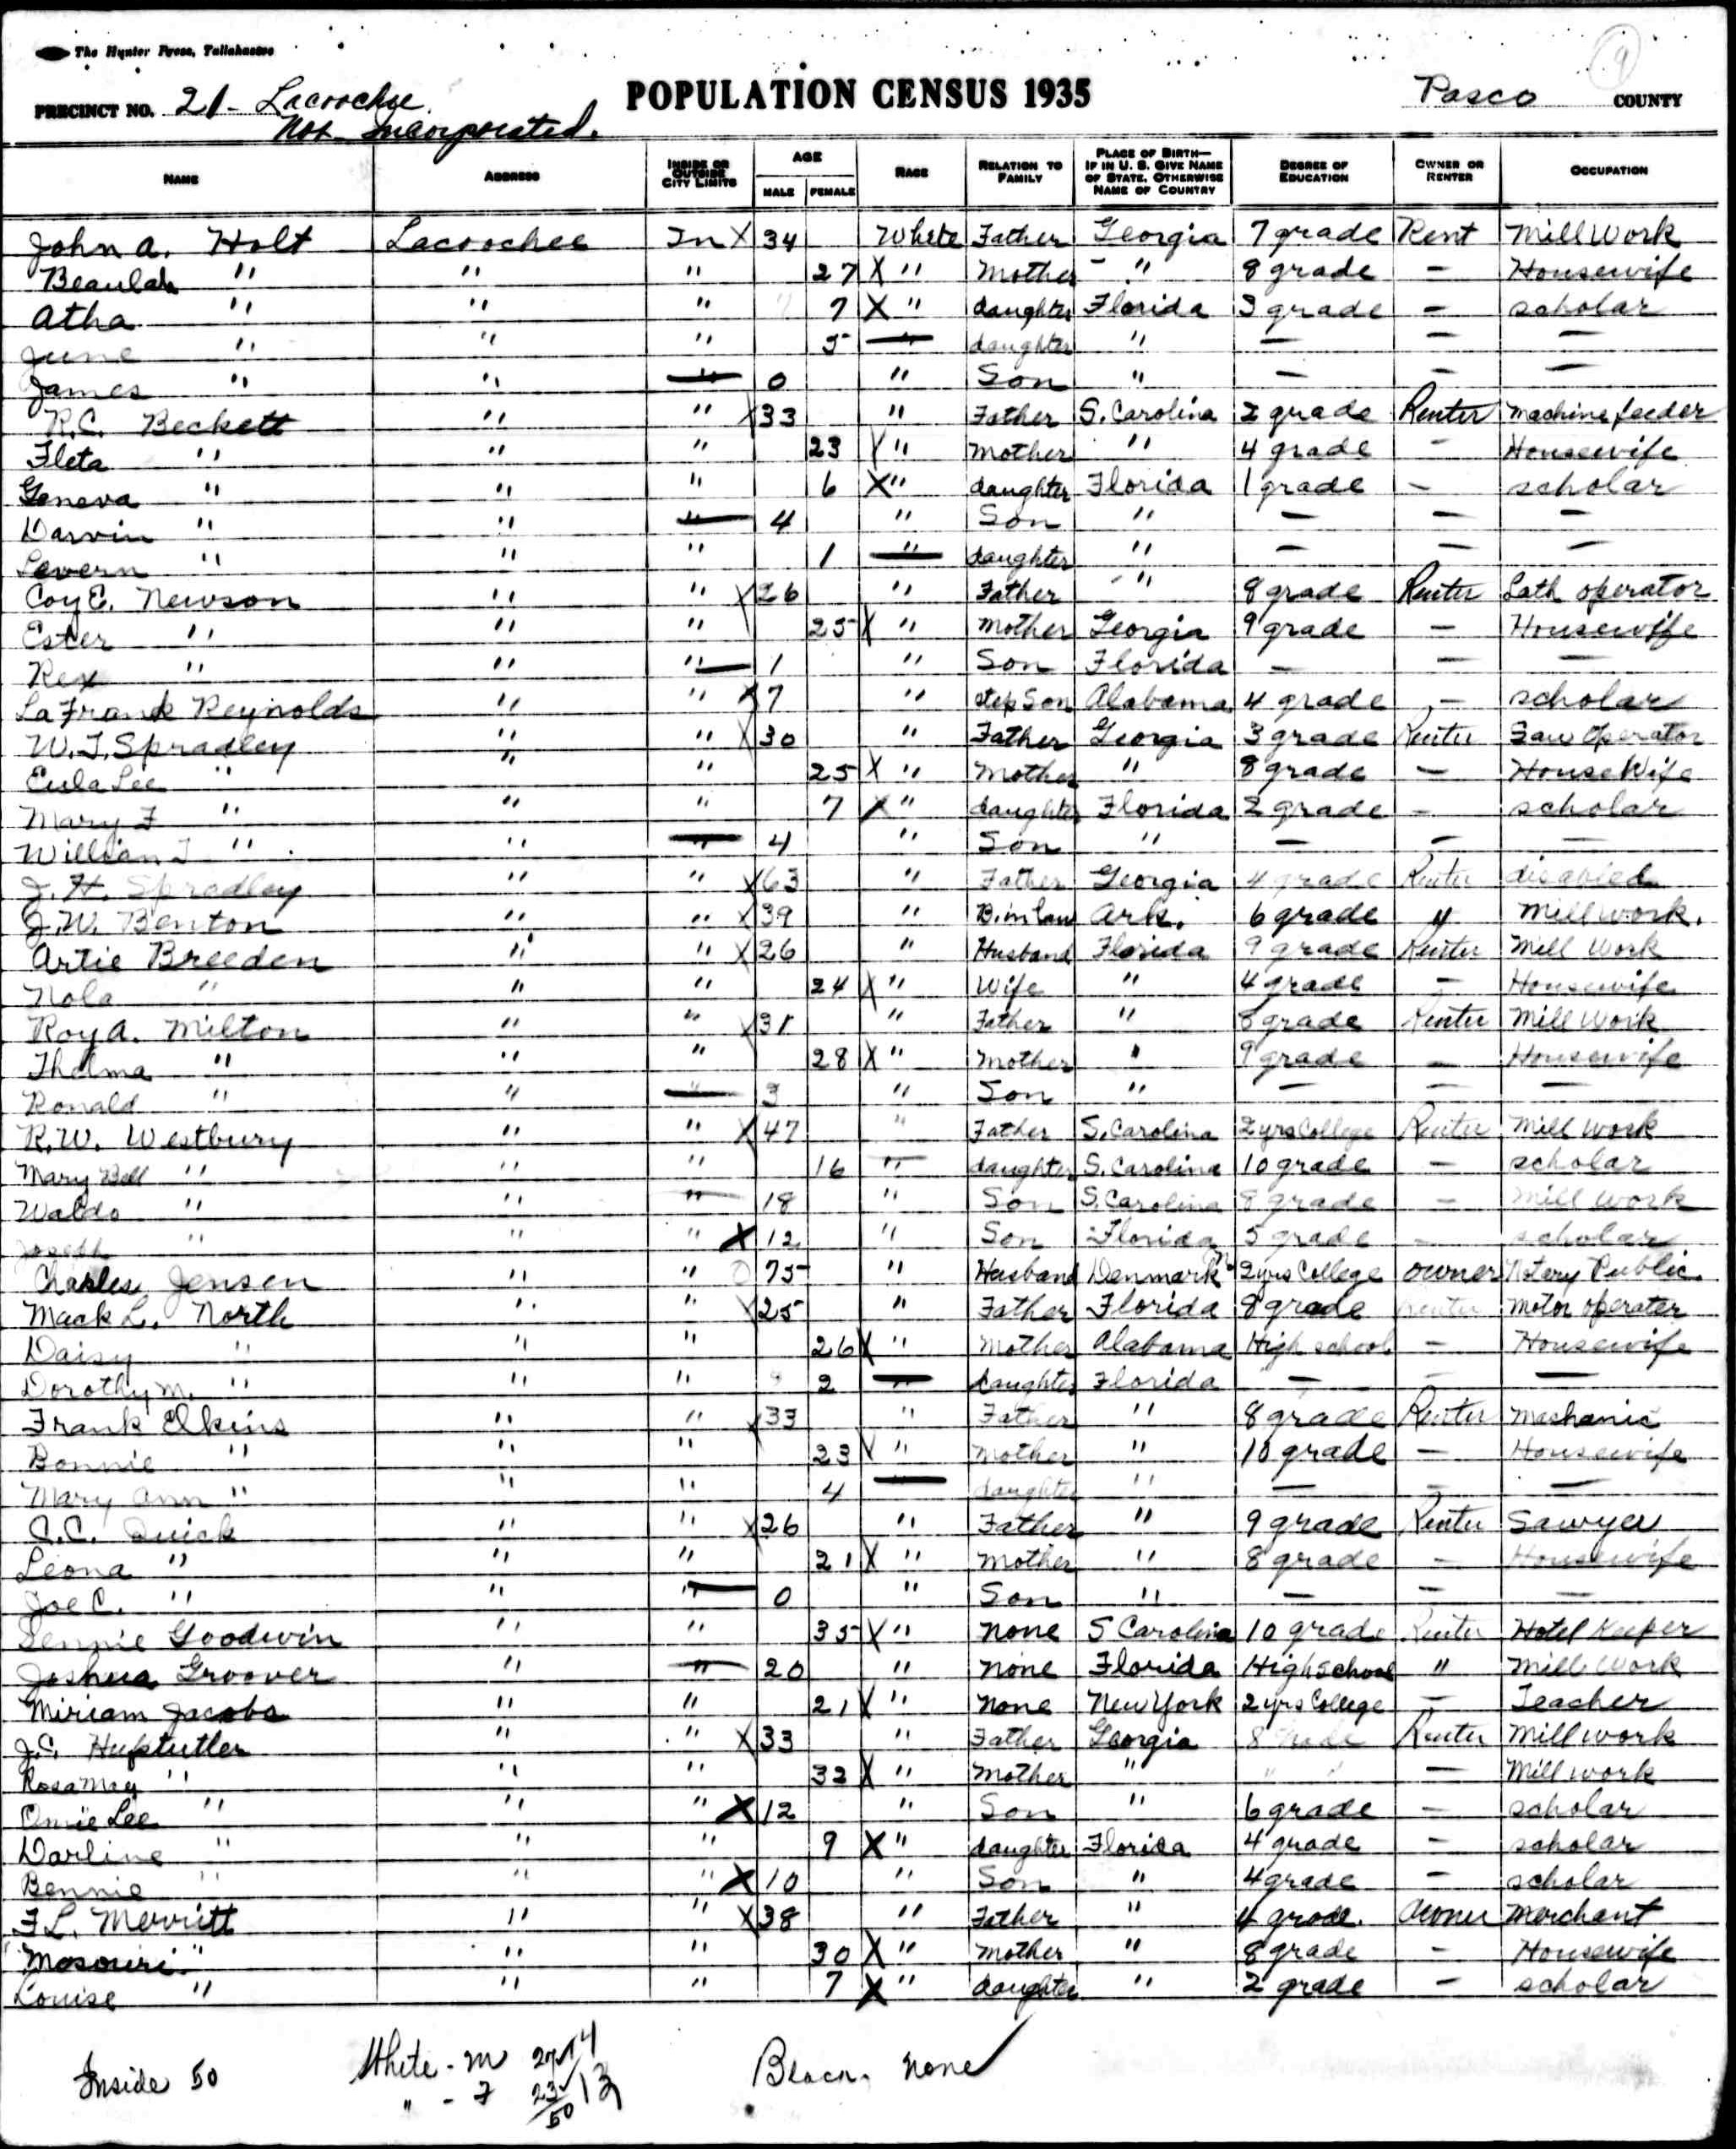 The Hunter Press, Tallahassee
9
PRECINCT NO. 21- Lacoochee POPULATION CENSUS 1935 Pasco COUNTY
Not Incorporated.
NAME ADDRESS INSIDE OR OUTSIDE CITY LIMITS AGE MALE FEMALE RACE RELATION TO FAMILY PLACE OF BIRTH— IF IN U. S. GIVE NAME OF STATE. OTHERWISE NAME OF COUNTRY DEGREE OF EDUCATION OWNER OR RENTER OCCUPATION
John A. Holt Lacoochee In X 34 White Father Georgia 7 grade Rent Mill Work
Beaulah " " " 27 X " Mother " 8 grade - Housewife
Atha " " " 7 X " daughter Florida 3 grade - scholar
June " " " 5 " daughter " - - -
James " " " 0 " Son " - - -
R.C. Beckett " " X 33 " Father S. Carolina 2 grade Renter Machine feeder
Fleta " " " 23 X " Mother " 4 grade - Housewife
Geneva " " " 6 X " daughter Florida 1 grade - scholar
Darvin " " " 4 " Son " - - -
Lavern " " " 1 " daughter " - - -
Coy E. Newson " " X 26 " Father " 8 grade Renter Lath operator
Ester " " " 25 X " Mother Georgia 9 grade - Housewife
Rex " " " 1 " Son Florida - - -
La Frank Reynolds " " X 7 " step Son Alabama 4 grade - scholar
W.T. Spradley " " X 30 " Father Georgia 3 grade Renter Saw Operator
Eula Lee " " " 25 X " Mother " 8 grade - House Wife
Mary F " " " 7 X " daughter Florida 2 grade - scholar
William T " " " 4 " Son " - - -
J. H. Spradley " " X 63 " Father Georgia 4 grade Renter disabled
J.W. Benton " " X 39 " B. in law Ark. 6 grade " Mill work.
Artie Breeden " " X 26 " Husband Florida 9 grade Renter Mill Work
Nola " " " 24 X " Wife " 4 grade - Housewife
Roy A. Milton " " X 31 " Father " 8 grade Renter Mill Work
Thelma " " " 28 X " Mother " 9 grade - Housewife
Ronald " " " 3 " Son " - - -
R.W. Westbury " " X 47 " Father S. Carolina 2 yrs College Renter Mill Work
Mary Bell " " " 16 " daughter S. Carolina 10 grade - scholar
Waldo " " " 18 " Son S. Carolina 8 grade - Mill Work
Joseph " " " X 12 " Son Florida 5 grade - scholar
Charles Jensen " " 75 " Husband Denmark 2 yrs College owner Notery Public.
Mack L. North " " X 25 " Father Florida 8 grade Renter Motor operater
Daisy " " " 26 X " Mother Alabama High school - Housewife
Dorothy M. " " " 2 " daughter Florida - - -
Frank Elkins " " X 33 " Father " 8 grade Renter Mechanic
Bonnie " " " 23 X " Mother " 10 grade - Housewife
Mary Ann " " " 4 " daughter " - - -
C.C. Quick " " X 26 " Father " 9 grade Renter Sawyer
Leona " " " 21 X " Mother " 8 grade - Housewife
Joe C. " " " 0 " Son " - - -
Goodwin " " 35 X " None S Carolina 10 grade Renter Hotel Keeper
Joshua Groover " " 20 " None Florida High school " Mill Work
Miriam Jacobs " " 21 X " None New York 2 yrs College - Teacher
J.C. " " X 33 " Father Georgia 8 grade Renter Mill work
Rosa May " " " 32 X " Mother " " " - Mill work
Lee " " " X 12 " Son " 6 grade - scholar
Darline " " " 9 X " daughter Florida 4 grade - scholar
Bennie " " " X 10 " Son " 4 grade - scholar
F.L. Merritt " " X 38 " Father " 4 grade. Owner Merchant
Mosouri " " " 30 X " Mother " 8 grade - Housewife
Louise " " " 7 X " daughter " 2 grade - scholar
Inside 50 White - M 27 14 Black. None
" - F 23 13
50